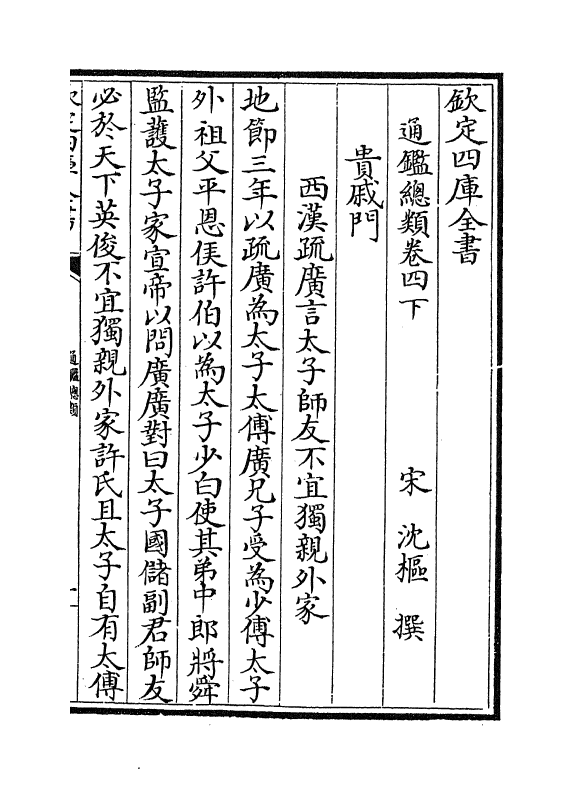 欽定四庫全書
通鑑總類卷四下　宋　沈樞　撰
貴戚門
西漢疏廣言太子師友不宜獨親外家
地節三年以疏廣為太子太傅廣兄子受為少傅太子
外祖父平恩侯許伯以為太子少白使其弟中郎將舜
監護太子家宣帝以問廣廣對曰太子國儲副君師友
必於天下英俊不宜獨親外家許氏且太子自有太傅
通鑑總類